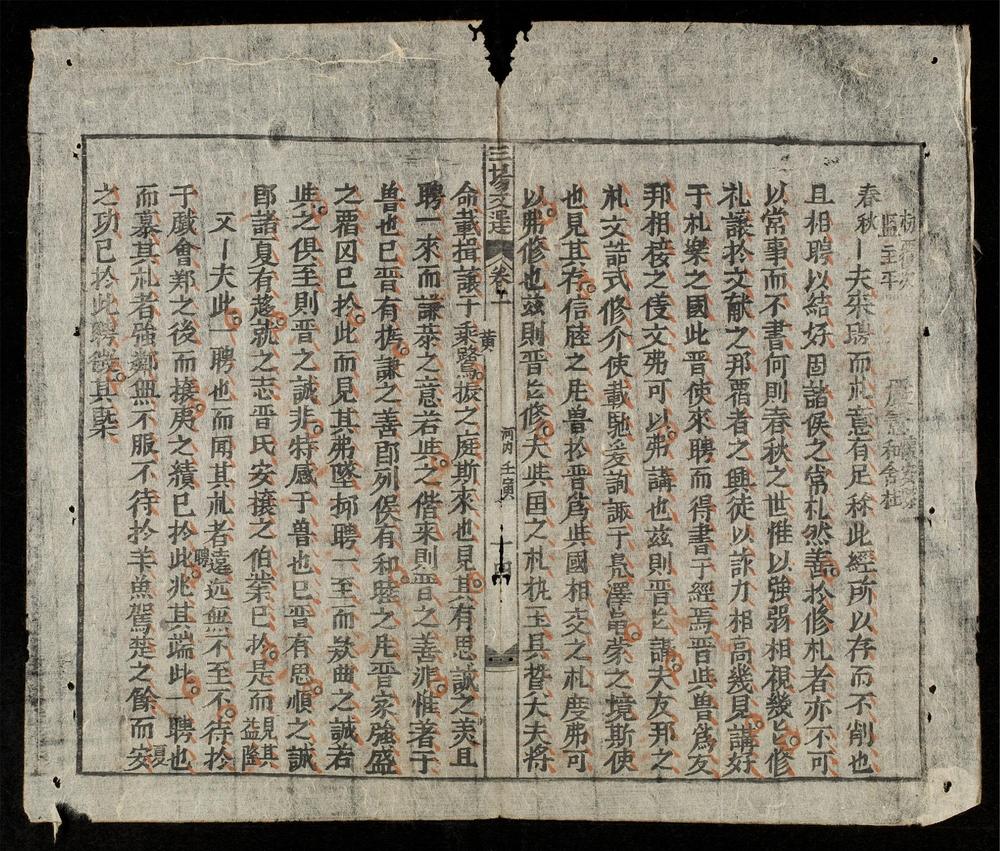 春秋丨夫來聘而礼意有足称此經所以存而不削也
且相聘以結好固諸侯之常礼然善扵修礼者亦不可
以常事而不書何則春秋之世惟以強弱相視幾乜修
礼讓扵文献之邦覇者之興徒以詠刀相高幾見講好
于礼樂之國此晋使來聘而得書于經焉晋與魯為友
邦相接之使文弗可以弗講也兹則晋乜講大友邦之
礼文誥式修介使載馳爰詢諏于鳧澤龜蒙之境斯使
也見其存信睦之庄魯扵晋為與國相交之礼度弗可
以弗修也兹則晋乜修大與国之礼執玉具贄大夫將
三場文選
卷
河内 壬寅
十四
命載揖讓于乘鷺振之庭斯來也見其有思誠之美且
黄
聘一來而謙恭之意若與之偕來則晋之善非惟著于
魯也巳晋有撝謙之善即列侯有和睦之庄晋家強盛
之覇囚巳扵此而見其弗墜抑聘一至而欵曲之誠若
與之俱至則晋之誠非特感于魯也巳晋有思順之誠
即諸夏有趍就之志晋氏安攘之伯業巳扵是而見其益隆
又丨夫此一聘也而聞其礼者遠近無不至不待扵
聘
于戲會鄭之後而攘夷之績巳扵此兆其端此一聘也
而慕其礼者強鄰無不服不待扵羊魚駕楚之餘而安
夏
之功巳扵此聘徴其槩